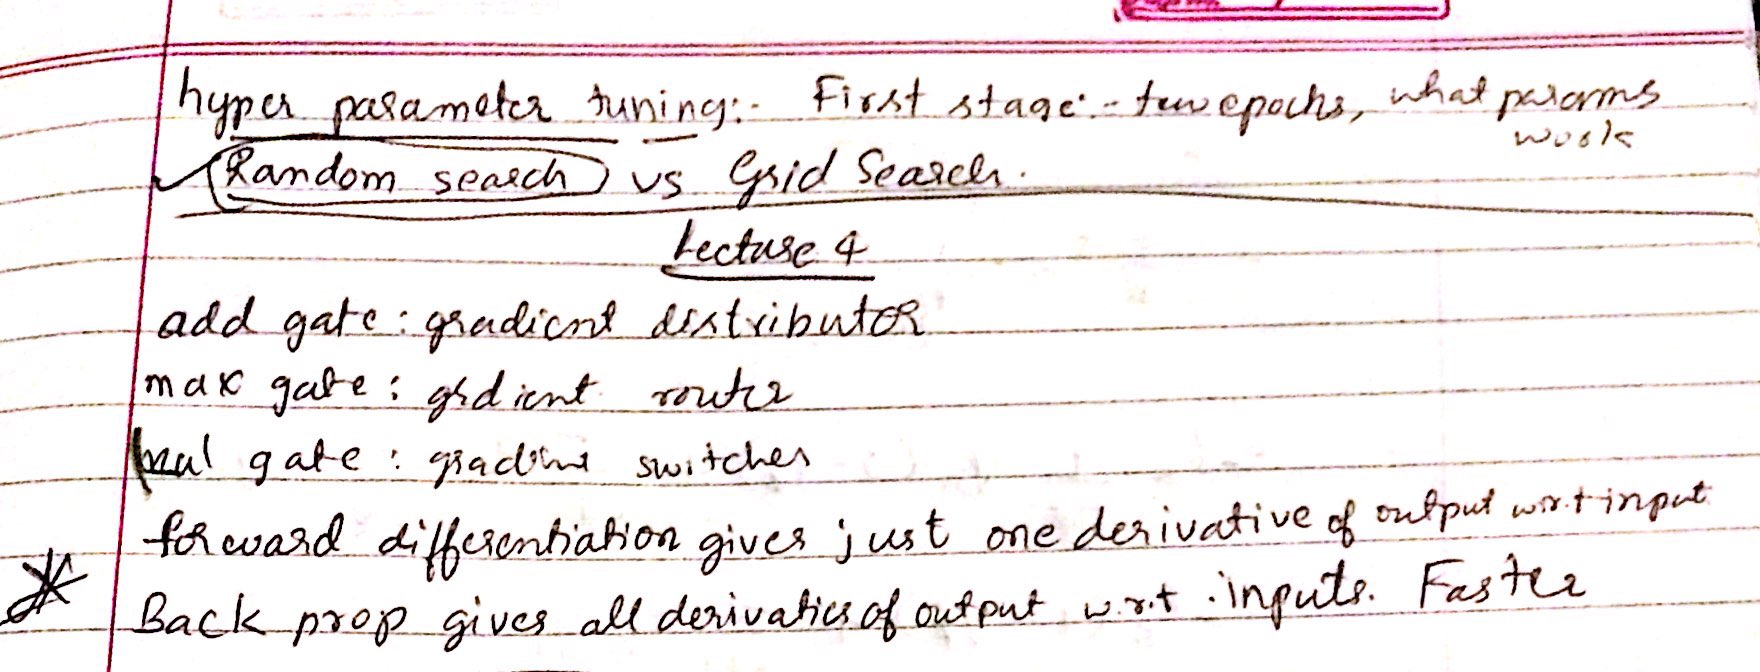 hyper parameter tuning:- First stage:- few epochs, what params
work
Random search vs Grid Search.
Lecture 4
add gate : gradient distributor
max gate : grdient router
mul gate : gradient switcher
forward differentiation gives just one derivative of output w.r.t input
Back prop gives all derivaties of output w.r.t. inputs. Faster